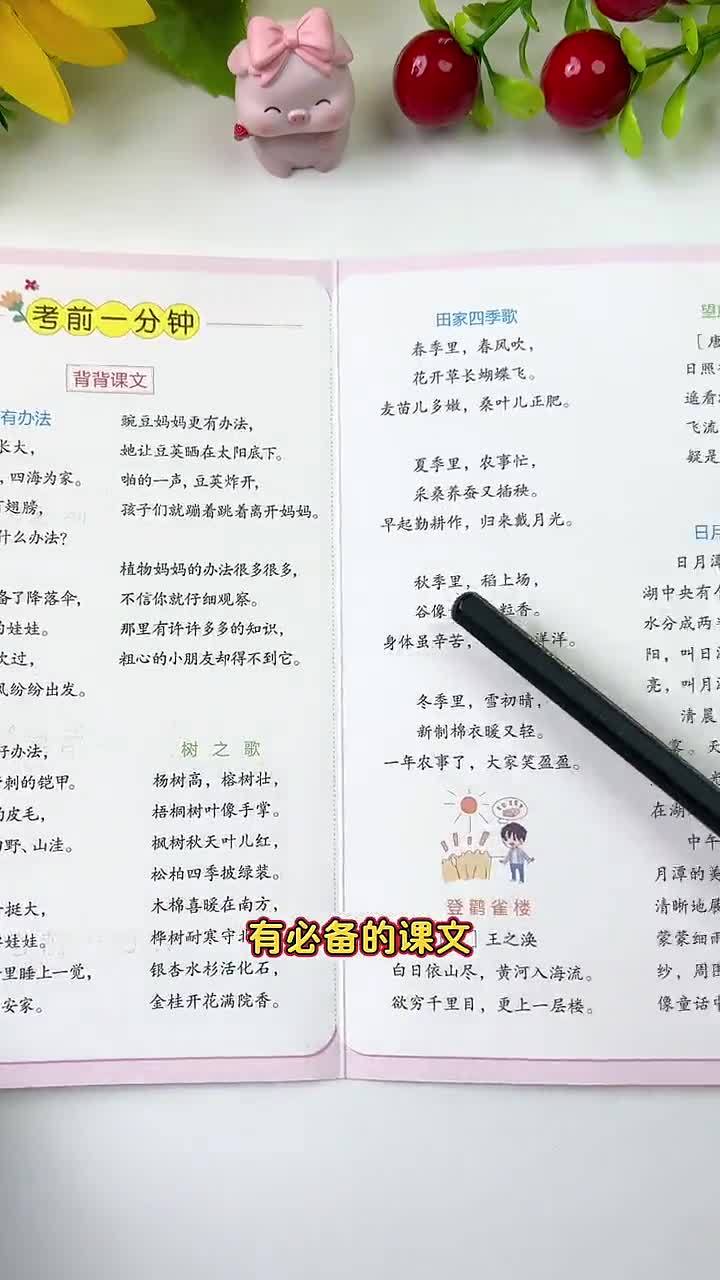 考前一分钟
背背课文
有办法
长大，
，四海为家。
翅膀，
什么办法？
备了降落伞，
的娃娃。
欢过，
风纷纷出发。
好办法，
刺的铠甲。
皮毛，
田野、山洼。
挺大，
娃娃。
里睡上一觉，
安家。
豌豆妈妈更有办法，
她让豆荚晒在太阳底下。
啪的一声，豆荚炸开，
孩子们就蹦着跳着离开妈妈。
植物妈妈的办法很多很多，
不信你就仔细观察。
那里有许许多多的知识，
粗心的小朋友却得不到它。
树之歌
杨树高，榕树壮，
梧桐树叶像手掌。
枫树秋天叶儿红，
松柏四季披绿装。
木棉喜暖在南方，
桦树耐寒守北
银杏水杉活化石，
金桂开花满院香。
田家四季歌
春季里，春风吹，
花开草长蝴蝶飞。
麦苗儿多嫩，桑叶儿正肥。
夏季里，农事忙，
采桑养蚕又插秧。
早起勤耕作，归来戴月光。
秋季里，稻上场，
谷像 粒香。
身体虽辛苦， 洋洋。
冬季里，雪初晴，
新制棉衣暖又轻。
一年农事了，大家笑盈盈。
登鹳雀楼
王之涣
白日依山尽，黄河入海流。
欲穷千里目，更上一层楼。
望
［唐
日照
遥看
飞流
疑是
日月
日月潭
湖中央有个
水分成两半
阳，叫日潭
亮，叫月潭
清晨
雾。天
在湖
中午
月潭的美
清晰地展
蒙蒙细雨
纱，周围
像童话中
有必备的课文